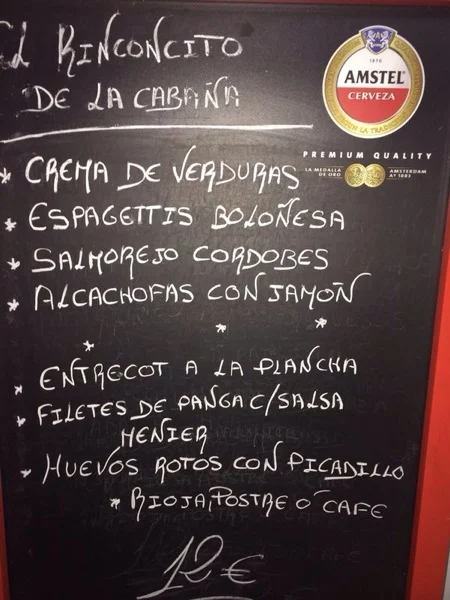 EL RINCONCITO
DE LA CABAÑA
1870
AMSTEL
CERVEZA
EN LA TRADI
PREMIUM QUALITY
LA MEDALLA
DE ORO
AMSTERDAM
Aº 1883
* CREMA DE VERDURAS
* ESPAGETTIS BOLOÑESA
* SALMOREJO CORDOBES
* ALCACHOFAS CON JAMOÑ
* * *
* ENTRECOT A LA PLANCHA
* FILETES DE PANGA C/SALSA
MENIER
* HUEVOS ROTOS CON PICADILLO
* RIOJA, POSTRE O´ CAFE
12€